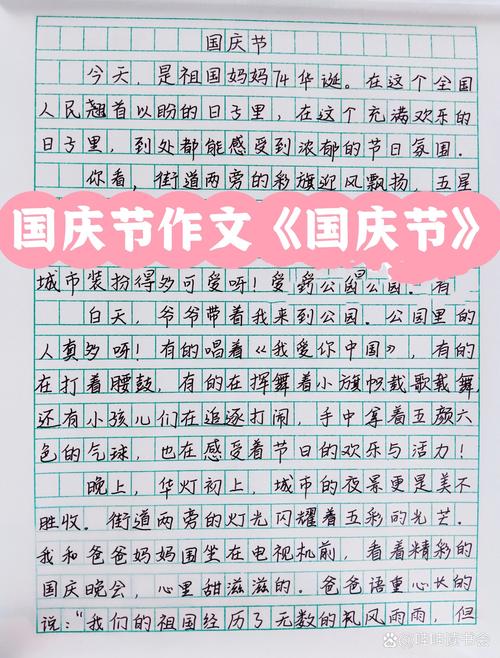 国庆节
今天，是祖国妈妈74华诞。在这个全国
人民翘首以盼的日子里，在这个充满欢乐的
日子里，到处都能感受到浓郁的节日氛围．
你看，街道两旁的彩旗迎风飘扬，五星
国庆节作文《国庆节》
城市装扮得多可爱呀！
白天，爷爷带着我来到公园．公园里的
人真多呀！有的唱着《我爱你中国》，有的
在打着腰鼓，有的在挥舞着小旗帜载歌载舞，
还有小孩儿们在追逐打闹，手中拿着五颜六
色的气球，也在感受着节日的欢乐与活力！
晚上，华灯初上，城市的夜景更是美不
胜收．街道两旁的灯光闪耀着五彩的光芒．
我和爸爸妈妈围坐在电视机前，看着精彩的
国庆晚会，心里甜滋滋的．爸爸语重心长的
说：“我们的祖国经历了无数的风风雨雨，但